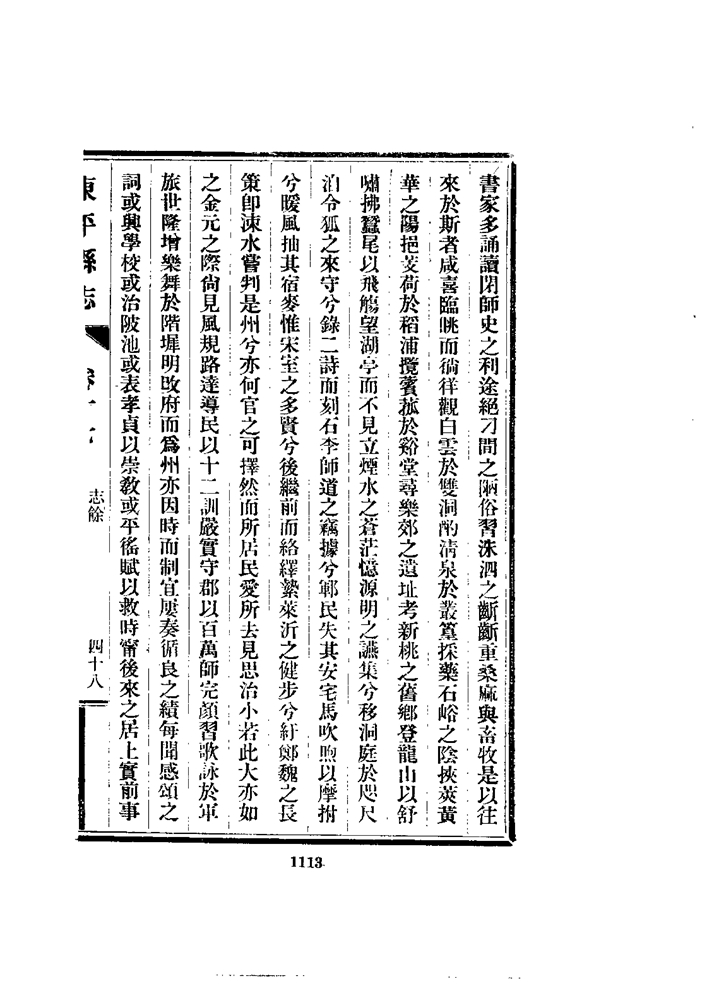 書家多誦讀閉師史之利途絕刁間之陋俗習洙泗之齗齗重桑麻與畜牧是以往
來於斯者咸喜臨眺而徜徉觀白雲於雙洞酌清泉於叢篁採藥石峪之陰挾莢黃
華之陽挹芰荷於稻浦攬薲菰於谿堂尋樂郊之遺址考新桃之舊鄉登龍山以舒
嘯拂蠶尾以飛觴望湖亭而不見立煙水之蒼茫憶源明之讌集兮移洞庭於咫尺
洎令狐之來守兮錄二詩而刻石李師道之竊據兮鄆民失其安宅馬吹煦以摩拊
兮暖風抽其宿麥惟宋室之多賢兮後繼前而絡繹縶萊沂之健步兮紆鄭魏之長
策卽涑水嘗判是州兮亦何官之可擇然而所居民愛所去見思治小若此大亦如
之金元之際尙見風規路達導民以十二訓嚴實守郡以百萬師完顏習歌詠於軍
旅世隆增樂舞於階墀明改府而爲州亦因時而制宜屢奏循良之績每聞感頌之
詞或興學校或治陂池或表孝貞以崇敎或平徭賦以救時甯後來之居上實前事
東平縣志
志餘
四十八
1113